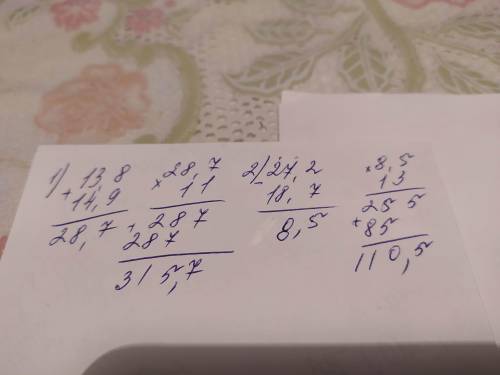 1) 13,8
+ 14,9
28,7
× 28,7
11
+ 287
287
315,7
2) - 27,2
18,7
8,5
× 8,5
13
255
+ 85
110,5